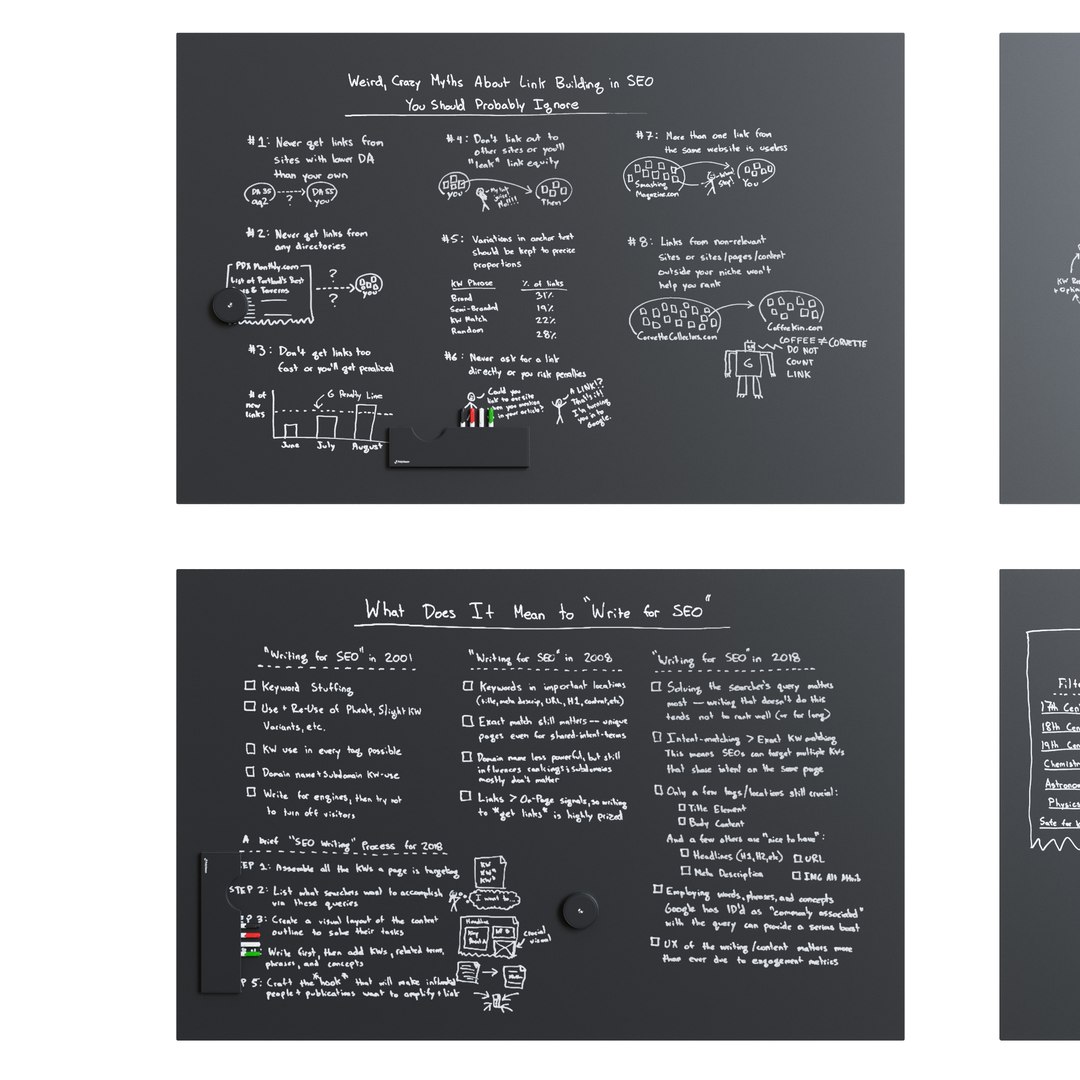 Weird, Crazy Myths About Link Building in SEO
You Should Probably Ignore
#1: Never get links from
sites with lower DA
than your own
DA 35
DA 55
?
you
#2: Never get links from
any directories
PDX Monthly.com
List of Portland's Best
& Taverns
?
?
you
#3: Don't get links too
fast or you'll get penalized
# of
new
links
G Penalty Line
June July August
#4: Don't link out to
other sites or you'll
"leak" link equity
you
My link
juice!
Them
#5: Variations in anchor text
should be kept to precise
proportions
KW Phrase % of links
Brand 31%
Semi-Branded 19%
KW Match 22%
Random 28%
#6: Never ask for a link
directly or you risk penalties
Could you
link to our site
when you mention
in your article?
A LINK!?
That's it!
I'm turning
you in to
Google.
#7: More than one link from
the same website is useless
Smashing
Magazine.com
You
#8: Links from non-relevant
sites or sites/pages/content
outside your niche won't
help you rank
CorvetteCollectors.com
CoffeeKin.com
G
COFFEE ≠ CORVETTE
DO NOT
COUNT
LINK
What Does It Mean to "Write for SEO"
"Writing for SEO" in 2001
Keyword Stuffing
Use + Re-Use of Phrase, Slight KW
Variants, etc.
KW use in every tag possible
Domain name + Subdomain KW-use
Write for engines, then try not
to turn off visitors
A brief "SEO Writing" Process for 2018
EP 1: Assemble all the KWs a page is targeting
STEP 2: List what searchers want to accomplish
via these queries
EP 3: Create a visual layout of the content
outline to solve their tasks
: Write first, then add KWs, related term,
phrases, and concepts
P 5: Craft the "hook" that will make influential
people + publications want to amplify + link
KW
I want to...
Headline
crucial
visual
"Writing for SEO" in 2008
Keywords in important locations
(title, meta descrip, URL, H1, content, etc)
Exact match still matters -- unique
pages even for shared-intent-terms
Domain name less powerful, but still
influences rankings + subdomains
mostly don't matter
Links > On-Page signals, so writing
to *get links* is highly prized
"Writing for SEO" in 2018
Solving the searcher's query matters
most -- writing that doesn't do this
tends not to rank well (or for long)
Intent-matching > Exact KW matching
This means SEOs can target multiple KWs
that share intent on the same page
Only a few tags/locations still crucial:
Title Element
Body Content
And a few others are "nice to have":
Headlines (H1, H2, etc) URL
Meta Description IMG Alt Attrib
Employing words, phrases, and concepts
Google has ID'd as "commonly associated"
with the query can provide a serious boost
UX of the writing/content matters more
than ever due to engagement metrics
KW
Filte
17th Cen
18th Cen
19th Cen
Chemistr
Astrono
Physics
Safe for